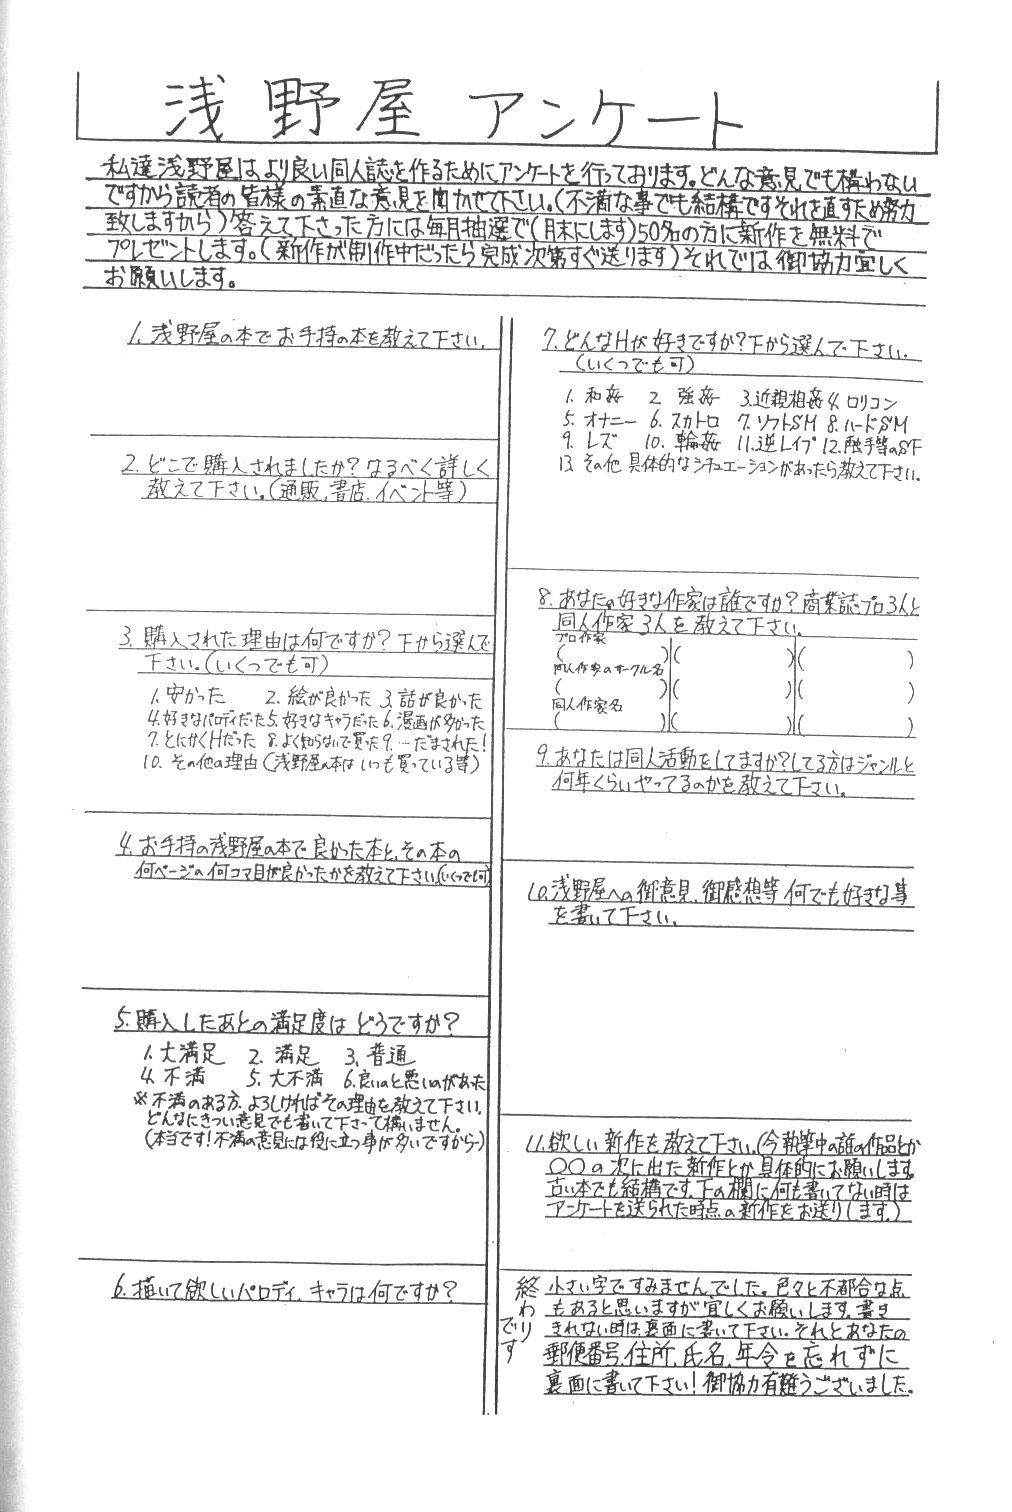 浅野屋 アンケート
私達浅野屋はより良い同人誌を作るためにアンケートを行っております。どんな意見でも構わない
ですから読者の皆様の素直な意見を聞かせて下さい。(不満な事でも結構ですそれを直すため努力
致しますから)答えて下さった方には毎月抽選で(月末にします)50名の方に新作を無料で
プレゼントします。(新作が制作中だったら完成次第すぐ送ります)それでは御協力宜しく
お願いします。
1. 浅野屋の本でお手持の本を教えて下さい。
2. どこで購入されましたか?なるべく詳しく
教えて下さい。(通販、書店、イベント等)
3. 購入された理由は何ですか?下から選んで
下さい。(いくつでも可)
1. 安かった 2. 絵が良かった 3. 話が良かった
4. 好きなパロディだった 5. 好きなキャラだった 6. 漫画が多かった
7. とにかくHだった 8. よく知らないで買った 9. …だまされた!
10. その他の理由(浅野屋の本はいつも買っている等)
4. お手持の浅野屋の本で良かった本と、その本の
何ページの何コマ目が良かったかを教えて下さい(いくつでも可)
5. 購入したあとの満足度はどうですか?
1. 大満足 2. 満足 3. 普通
4. 不満 5. 大不満 6. 良いのと悪いのがあった
※不満のある方、よろしければその理由を教えて下さい。
どんなにきつい意見でも書いて下さって構いません。
(本当です!不満の意見には役に立つ事が多いですから)
6. 描いて欲しいパロディ、キャラは何ですか?
7. どんなHが好きですか?下から選んで下さい。
(いくつでも可)
1. 和姦 2. 強姦 3. 近親相姦 4. ロリコン
5. オナニー 6. スカトロ 7. ソフトSM 8. ハードSM
9. レズ 10. 輪姦 11. 逆レイプ 12. 触手等のSF
13. その他 具体的なシチュエーションがあったら教えて下さい。
8. あなたの好きな作家は誰ですか?商業誌プロ3人と
同人作家3人を教えて下さい。
プロ作家
( )( )( )
同人作家のサークル名
( )( )( )
同人作家名
( )( )( )
9. あなたは同人活動をしてますか?してる方はジャンルと
何年くらいやってるのかを教えて下さい。
10. 浅野屋への御意見、御感想等何でも好きな事
を書いて下さい。
11. 欲しい新作を教えて下さい。(今執筆中の誰の作品とか
〇〇の次に出た新作とか具体的にお願いします。
古い本でも結構です。下の欄に何も書いてない時は
アンケートを送られた時点の新作をお送りします。)
終わりです
小さい字ですみませんでした。色々と不都合な点
もあると思いますが宜しくお願いします。書き
きれない時は裏面に書いて下さい。それとあなたの
郵便番号、住所、氏名、年令を忘れずに
裏面に書いて下さい!御協力有難うございました。